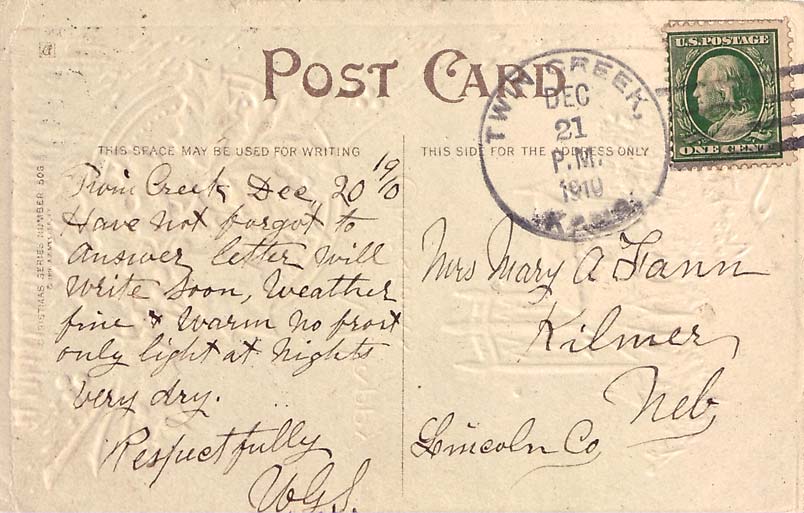 POST CARD
U.S. POSTAGE
ONE CENT
TWIN CREEK,
DEC
21
P.M.
1910
KANS.
THIS SPACE MAY BE USED FOR WRITING
THIS SIDE FOR THE ADDRESS ONLY
CHRISTMAS SERIES NUMBER 506
Twin Creek Dec, 20 1910
Have not forgot to
Answer letter Will
Write Soon, Weather
fine & Warm no frost
only light at Nights
very dry.
Respectfully
W.G.S.
Mrs Mary A Fann
Kilmer,
Neb
Lincoln Co